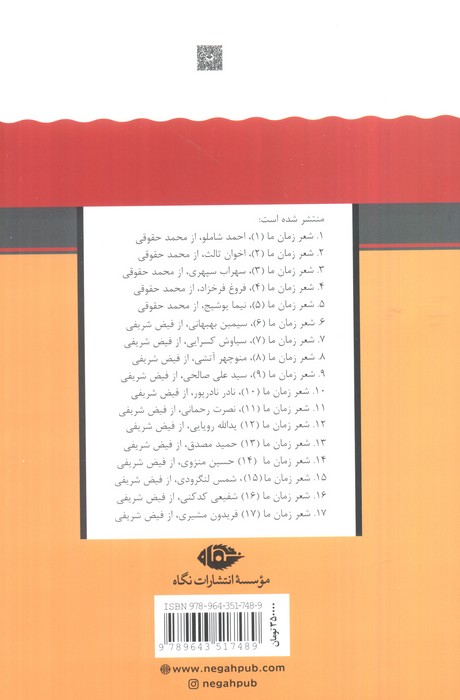 منتشر شده است:
۱. شعر زمان ما (۱)، احمد شاملو، از محمد حقوقی
۲. شعر زمان ما (۲)، اخوان ثالث، از محمد حقوقی
۳. شعر زمان ما (۳)، سهراب سپهری، از محمد حقوقی
۴. شعر زمان ما (۴)، فروغ فرخزاد، از محمد حقوقی
۵. شعر زمان ما (۵)، نیما یوشیج، از محمد حقوقی
۶. شعر زمان ما (۶)، سیمین بهبهانی، از فیض شریفی
۷. شعر زمان ما (۷)، سیاوش کسرایی، از فیض شریفی
۸. شعر زمان ما (۸)، منوچهر آتشی، از فیض شریفی
۹. شعر زمان ما (۹)، سید علی صالحی، از فیض شریفی
۱۰. شعر زمان ما (۱۰)، نادر نادرپور، از فیض شریفی
۱۱. شعر زمان ما (۱۱)، نصرت رحمانی، از فیض شریفی
۱۲. شعر زمان ما (۱۲)، یدالله رویایی، از فیض شریفی
۱۳. شعر زمان ما (۱۳) حمید مصدق، از فیض شریفی
۱۴. شعر زمان ما (۱۴) حسین منزوی، از فیض شریفی
۱۵. شعر زمان ما (۱۵)، شمس لنگرودی، از فیض شریفی
۱۶. شعر زمان ما (۱۶) شفیعی کدکنی، از فیض شریفی
۱۷. شعر زمان ما (۱۷) فریدون مشیری، از فیض شریفی
نگاه
مؤسسۀ انتشارات نگاه
ISBN 978-964-351-748-9
9 789643 517489
۳۵۰۰۰۰ تومان
www.negahpub.com
negahpub